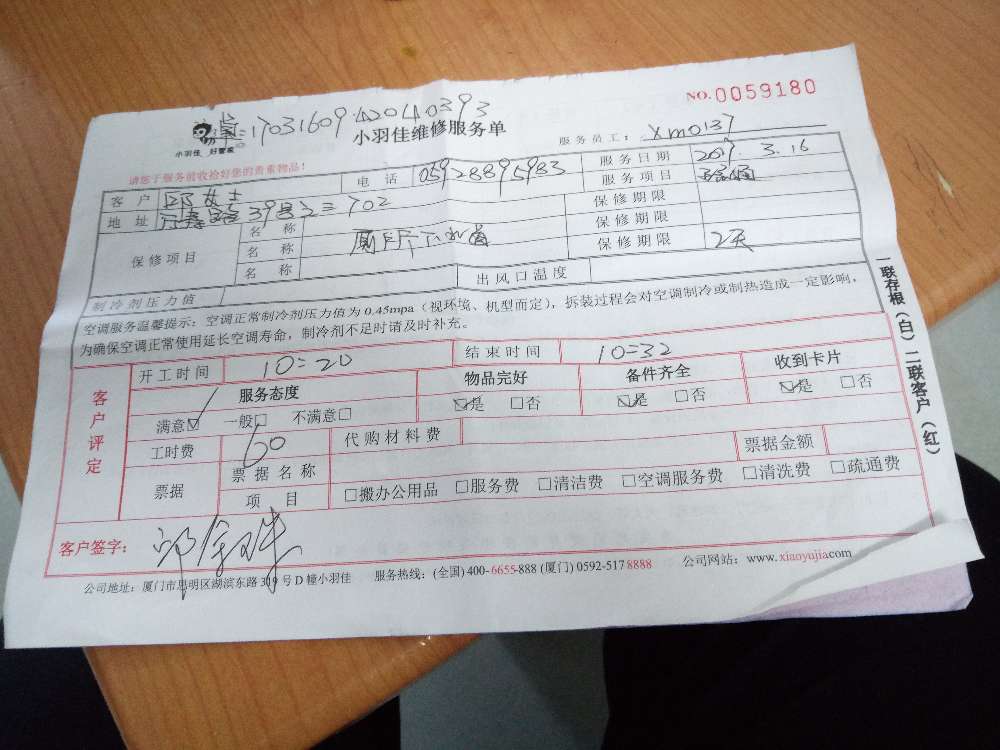 NO.0059180
单:17031609420440393
小羽佳 好管家
小羽佳维修服务单
服务员工: xm0137
请您于服务前收拾好您的贵重物品!
客户 邱女士 电话 05928895983 服务日期 2017. 3.16
地址 39号之三702 服务项目 疏通
保修项目 名称 保修期限
名称 厕所下水道 保修期限
名称 保修期限 2天
制冷剂压力值 出风口温度
空调服务温馨提示:空调正常制冷剂压力值为0.45mpa(视环境、机型而定),拆装过程会对空调制冷或制热造成一定影响,
为确保空调正常使用延长空调寿命,制冷剂不足时请及时补充。
客户评定
开工时间 10:20 结束时间 10:32
服务态度 物品完好 备件齐全 收到卡片
满意☑ 一般□ 不满意□ ☑是 □否 ☑是 □否 ☑是 □否
工时费 60 代购材料费
票据 票据名称 票据金额
项目 □搬办公用品 □服务费 □清洁费 □空调服务费 □清洗费 □疏通费
客户签字: 邱
公司地址:厦门市思明区湖滨东路319号D幢小羽佳 服务热线:(全国)400-6655-888 (厦门)0592-5178888 公司网站:www.xiaoyujia.com
一联存根(白)二联客户(红)